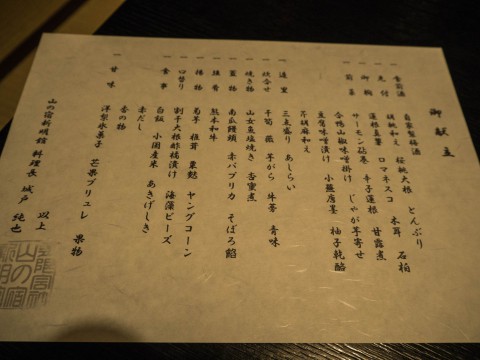 御献立
一 食前酒 自家製梅酒
一 先付 胡桃和え 桜桃大根 とんぶり
一 御椀 蓮根真薯 ロマネスコ 木耳 石柏
一 前菜 サーモン砧巻 辛子蓮根 甘露煮
合鴨山椒味噌掛け じゃが芋寄せ
豆腐味噌漬け 小蕪唐墨 柚子乾酪
芹胡麻和え
一 造里 三点盛り あしらい
一 炊合せ 干筍 蕗 芋がら 牛蒡 青味
一 焼き物 山女魚塩焼き 杏蜜煮
一 蓋物 南瓜饅頭 赤パプリカ そぼろ餡
一 強肴 熊本和牛
一 揚物 菊芋 椎茸 粟麩 ヤングコーン
一 口替り 割干大根酢橘漬け 海藻ビーズ
一 食事 白飯 小国産米 あきげしき
赤だし
香の物
一 甘味 洋梨氷菓子 芒果ブリュレ 果物
以上
山の宿新明館 料理長 城戸 純也